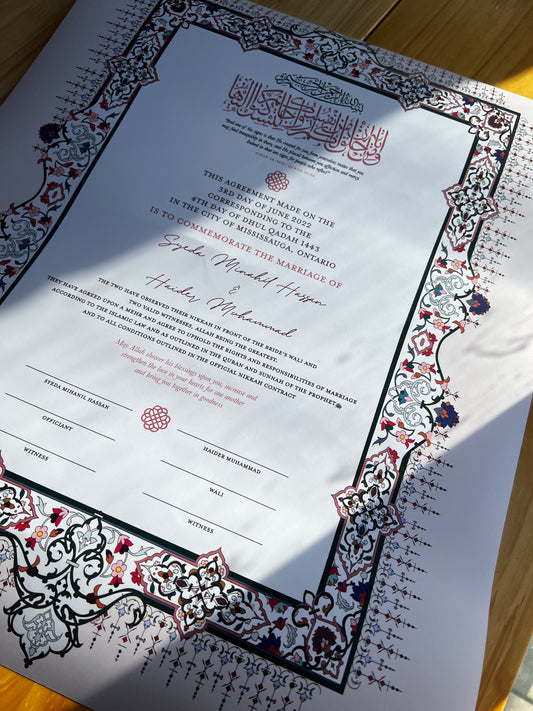 بسم الله الرحمن الرحيم
ومن آياته أن خلق لكم من أنفسكم أزواجا لتسكنوا إليها
"And one of his signs is that He created for you mates that you
may find tranquility in them, and He placed between you affection and mercy.
Indeed in that are signs for people who reflect"
THIS AGREEMENT MADE ON THE
3RD DAY OF JUNE 2022
CORRESPONDING TO THE
4TH DAY OF DHUL QADAH 1443
IN THE CITY OF MISSISSAUGA, ONTARIO
IS TO COMMEMORATE THE MARRIAGE OF
Syeda Minahil Hassan
&
Haider Muhammad
THE TWO HAVE OBSERVED THEIR NIKKAH IN FRONT OF THE BRIDE'S WALI AND
TWO VALID WITNESSES, ALLAH BEING THE GREATEST:
THEY HAVE AGREED UPON A MEHR AND AGREE TO UPHOLD THE RIGHTS AND RESPONSIBILITIES OF MARRIAGE
ACCORDING TO THE ISLAMIC LAW AND AS OUTLINED IN THE QURAN AND SUNNAH OF THE PROPHET ﷺ
AND TO ALL CONDITIONS OUTLINED IN THE OFFICIAL NIKKAH CONTRACT
May Allah shower his blessings upon you, increase and
strengthen the love in your hearts for one another
and bring you together in goodness
SYEDA MIHANIL HASSAN
HAIDER MUHAMMAD
OFFICIANT
WALI
WITNESS
WITNESS